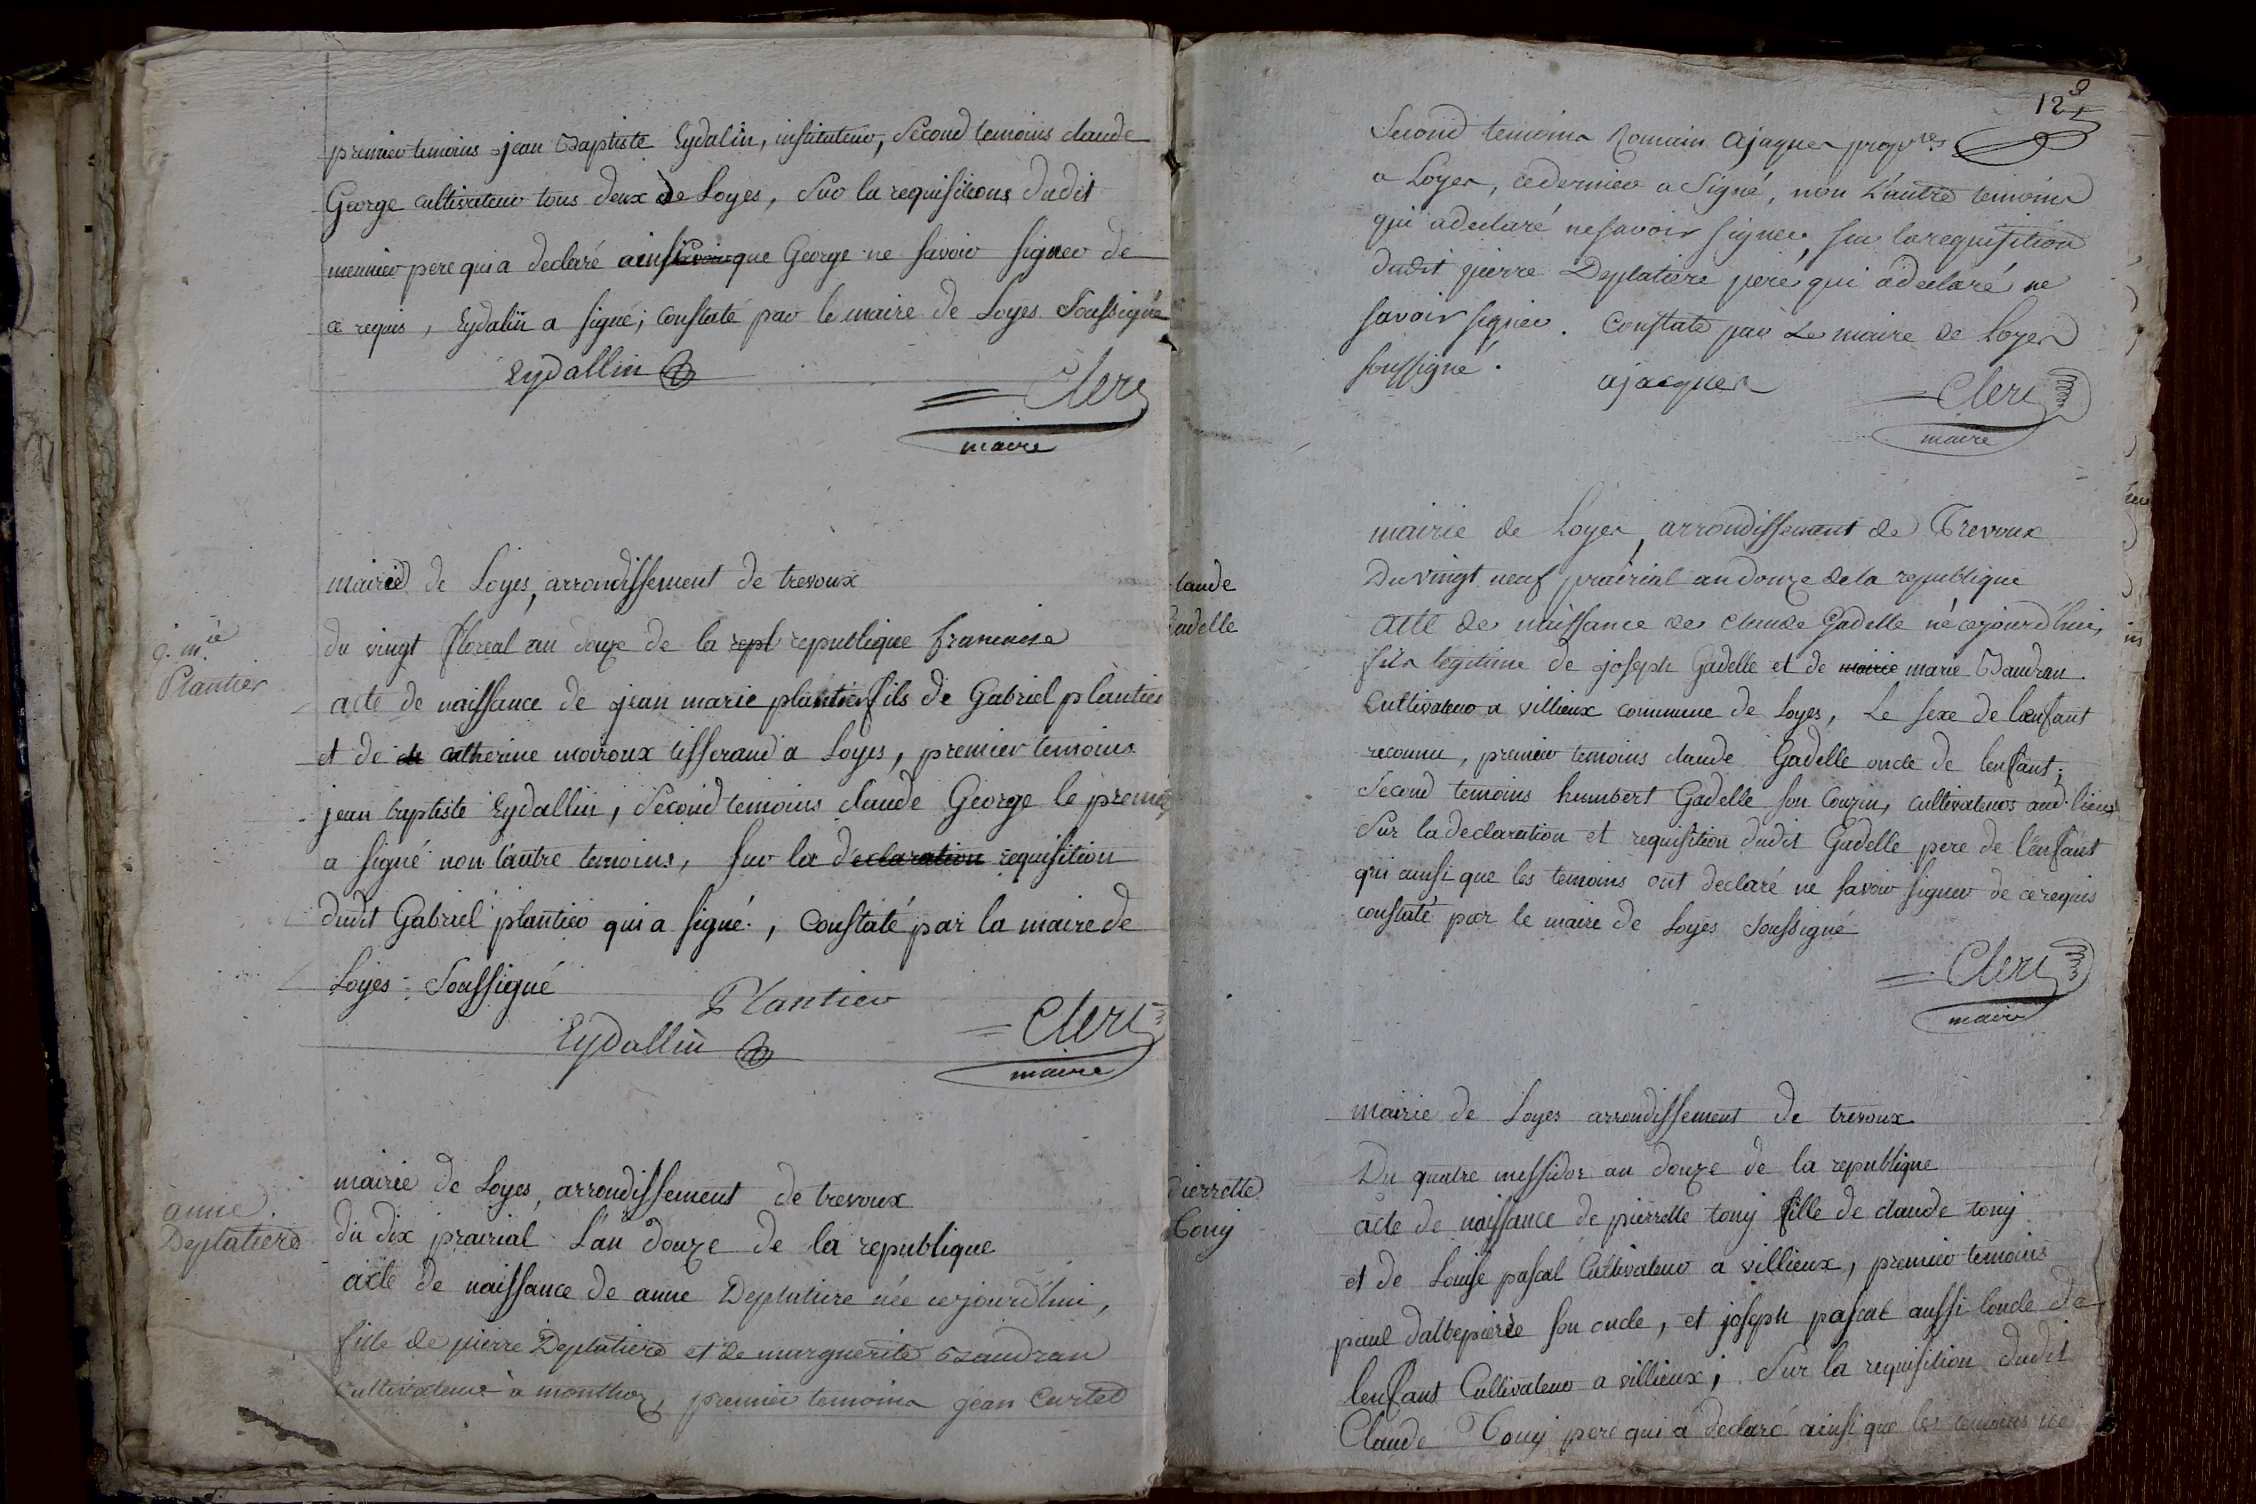 premier temoins jean Baptiste Eydalin, instituteur, Second temoins claude
George cultivateur tous deux de Loyes, Sur la requisitions dudit
meunier pere qui a declaré ainsi que George ne savoir signer de
ce requis, Eydalin a signé; Constaté par le maire de Loyes Soussigné
Eydallin
Clerc
maire
j. m.ie
Plantier
mairie de Loyes, arrondissement de trevoux
du vingt floreal an douze de la repl republique francaise
acte de naissance de jean marie plantier fils de Gabriel plantier
et de catherine moiroux tisserand a Loyes, premier temoins
jean baptiste Eydallin, Second temoins claude George le premier
a signé non l'autre temoins, sur la declaration requisition
dudit Gabriel plantier qui a signé, Constaté par la maire de
Loyes Soussigné
Plantier
Eydallin
Clerc
maire
anne
Deplatiere
mairie de Loyes, arrondissement de trevoux
du dix prairial l'an douze de la republique
acte de naissance de anne Deplatiere née cejourd'hui,
fille de pierre Deplatiere et de marguerite Baudran
Cultivateur a monthoz, premier temoins jean Curtet
123
Second temoins Romain ajaques propre.s
a Loyes, ce dernier a Signé, non L'autre temoins
qui a declaré ne savoir signer, sur la requisition
dudit pierre Deplatiere pere, qui a declaré ne
savoir signer. Constaté par Le maire de Loyes
soussigné.
ajaques
Clerc
maire
laude
Gadelle
mairie de Loyes, arrondissement de Trevoux
Du vingt neuf prairial an douze de la republique
acte de naissance de claude Gadelle né cejourd'hui,
fils legitime de joseph Gadelle et de mairie marie Baudran
Cultivateur a villieux commune de Loyes, Le sexe de l'enfant
reconnu, premier temoins claude Gadelle oncle de lenfant;
Second temoins humbert Gadelle son Couzin, cultivateurs aud. lieux
Sur la declaration et requisition dudit Gadelle pere de l'enfant
qui ainsi que les temoins ont declaré ne savoir signer de ce requis
constaté par le maire de Loyes soussigné
Clerc
maire
pierrette
Tony
mairie de Loyes arrondissement de trevoux
Du quatre messidor an douze de la republique
acte de naissance de pierrette tony fille de claude tony
et de Louise pascal Cultivateur a villieux, premier temoins
paul daltepierre son oncle, et joseph pascal aussi l'oncle de
lenfant Cultivateur a villieux; Sur la requisition dudit
Claude Tony pere qui a declaré ainsi que les temoins ne